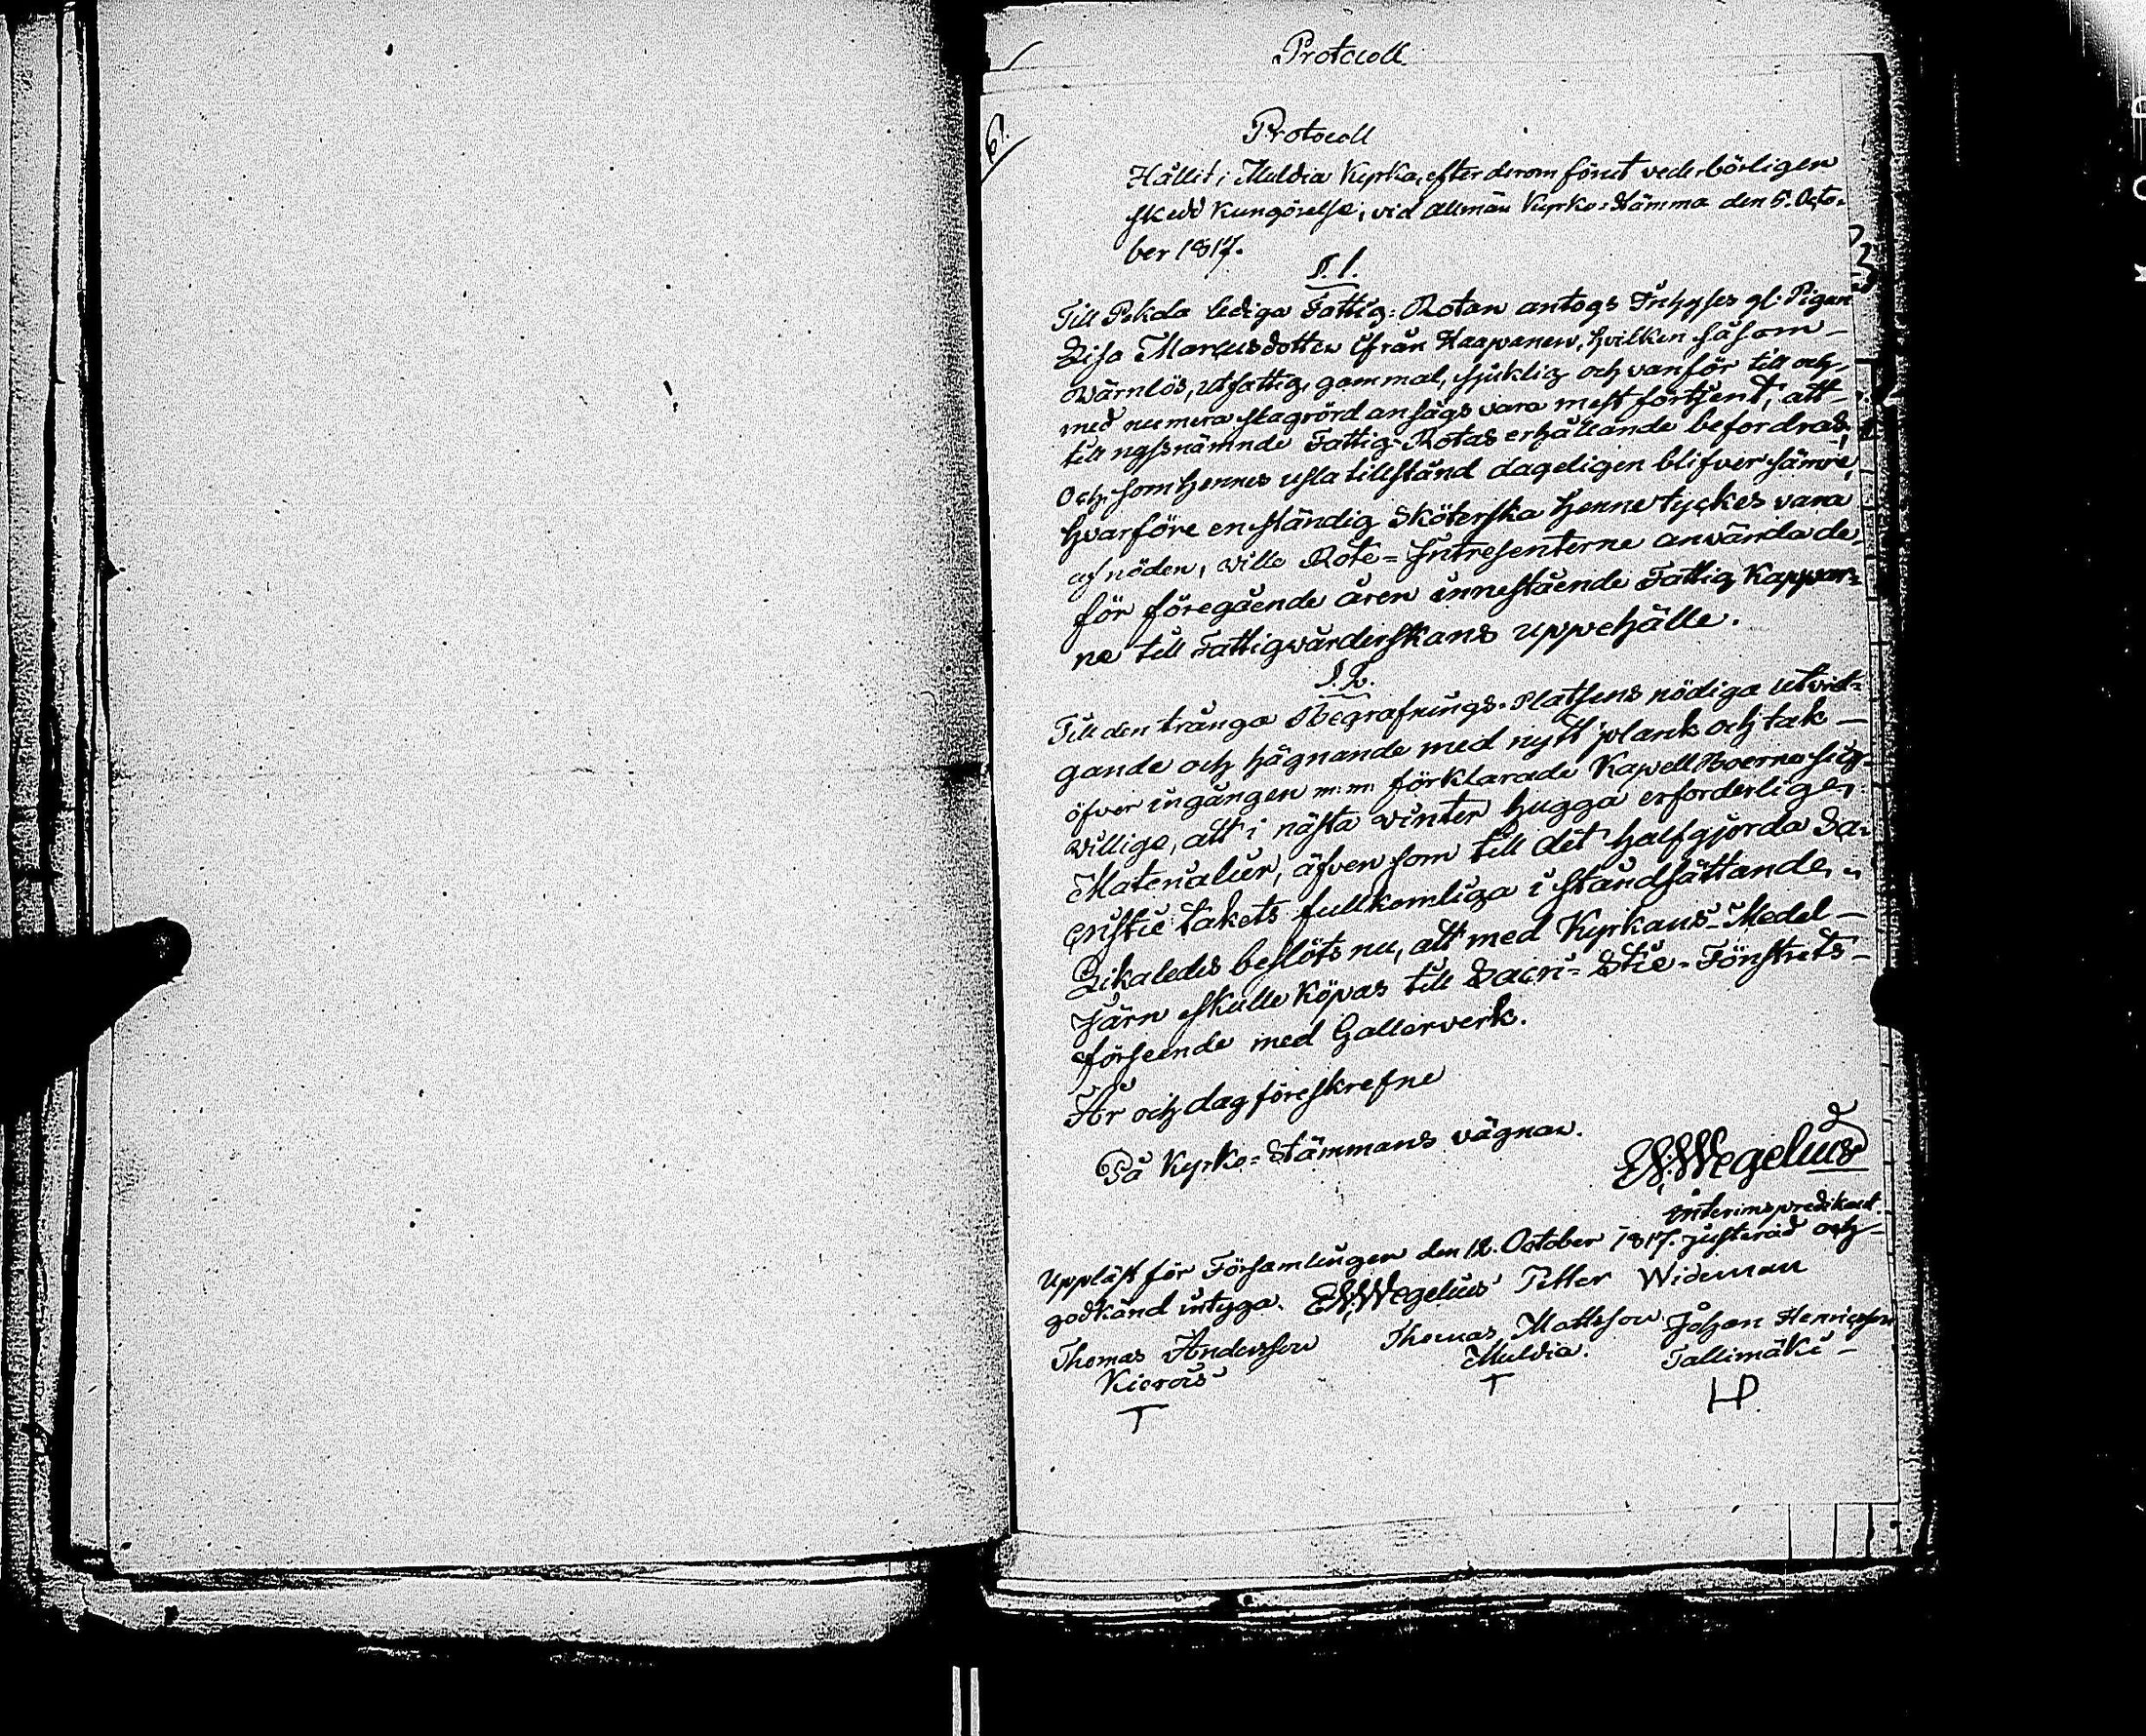 Protocoll
6.
Protocoll
Hållit i Muldia Kyrka, efter derom förut vederbörligen
skedd Kungörelse, vid allmän Kyrko-Stämma den 5. Octo-
ber 1817.
3
§. 1.
Till Pekola lediga Fattig-Rotan antogs Inhyses gl. Pigan
Lisa Marcusdotter ifrån Haapanen, hvilken såsom
wärnlös, utfattig, gammal, sjuklig och vanför till och
med numera slagrörd ansågs vara mest förtjent, att
till nyssnämnde Fattig-Rotas erhållande befordras,
Och som hennes usla tillstånd dageligen blifver sämre,
hvarföre en ständig Sköterska henne tyckes vara
af nöden, wille Rote-Intressenterne använda de,
för föregående åren innestående Fattig Kappar-
ne till Fattigvårderskans uppehälle.
§. 2.
Till den trånga Begrafnings-Platsens nödiga utvid-
gande och hägnande med nytt plank och tak
öfver ingången m:m: förklarade KapellBoerne sig
willige, att i nästa winter hugga erforderlige
Materialier, äfvensom till det halfgjorda Sa-
cristie takets fullkomliga i ståndsättande,
Likaledes beslöts nu, att med Kyrkans Medel
Järn skulle köpas till Sacri-Stie-Fönstrets
förseende med Gallerverk.
År och dag föreskrefne
På Kyrko-Stämmans vägnar.
Wegelius
interimspredikant.
Uppläst för Församlingen den 12. October 1817. justerad och
godkänd intyga. Wegelius Petter Wideman
Thomas Andersson Thomas Mattsson Johan Henricsson
Kierois Muldia. Tallimäki
T T HP.